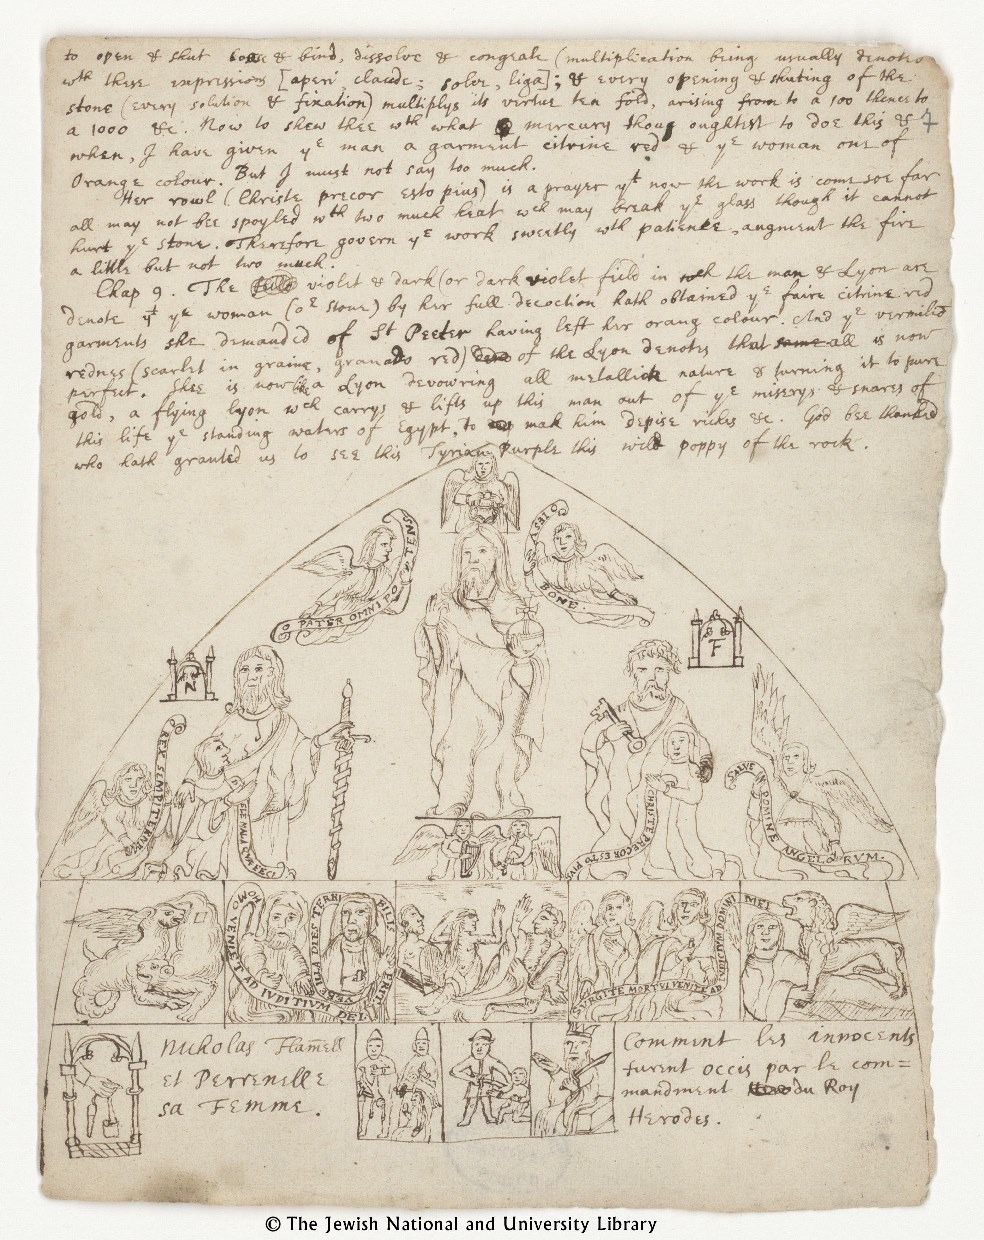 to open & shut loose & bind, dissolve & congeale (multiplication being usually denoted
wth these expressions [aperi, claude; solve, liga]; & every opening & shuting of the
stone (every solution & fixation) multiplys its virtue ten fold, arising from to a 100 thence to
a 1000 &c. Now to shew thee wth what mercury thou oughtest to doe this &
when, I have given ye man a garment citrine red & ye woman one of
Orange colour. But I must not say too much.
Her rowl (Christe precor esto pius) is a prayer yt now the work is come soe far
all may not bee spoyled wth two much heat wch may break ye glass though it cannot
hurt ye stone. Therefore govern ye work sweetly wth patience, augment the fire
a little but not two much.
Chap 9. The violet & dark (or dark violet field in wch the man & Lyon are
denote yt ye woman (or stone) by her full decoction hath obtained ye faire citrine red
garments she demanded of St Peeter having left her orang colour. And ye vermilio
rednes (scarlet in graine, granado red) of the Lyon denotes that all is now
perfect. Shee is now like a Lyon devowring all metallick nature & turning it to pure
gold, a flying lyon wch carrys & lifts up this man out of ye miserys & snares of
this life ye standing waters of Egypt, to mak him depise riches &c. God bee thanked
who hath granted us to see this Tyrian Purple this wild poppy of the rock.
O PATER OMNIPOTENS
O IESV SALO
BONE
N
F
REX SEMPITERNE
DELE MALA QUAE FECI
CHRISTE PRECOR ESTO PIVS
SALVE DOMINE ANGELORVM.
HOMO VENIET AD IUDITIUM DEI
VERE ILLA DIES TERRIBILIS ERIT
SVRGITE MORTVI VENITE AD IUDICIUM DOMINI MEI
Nicholas Flamell
et Perrenelle
sa Femme.
Comment les innocents
furent occis par le com=
mandment du Roy
Herodes.
© The Jewish National and University Library